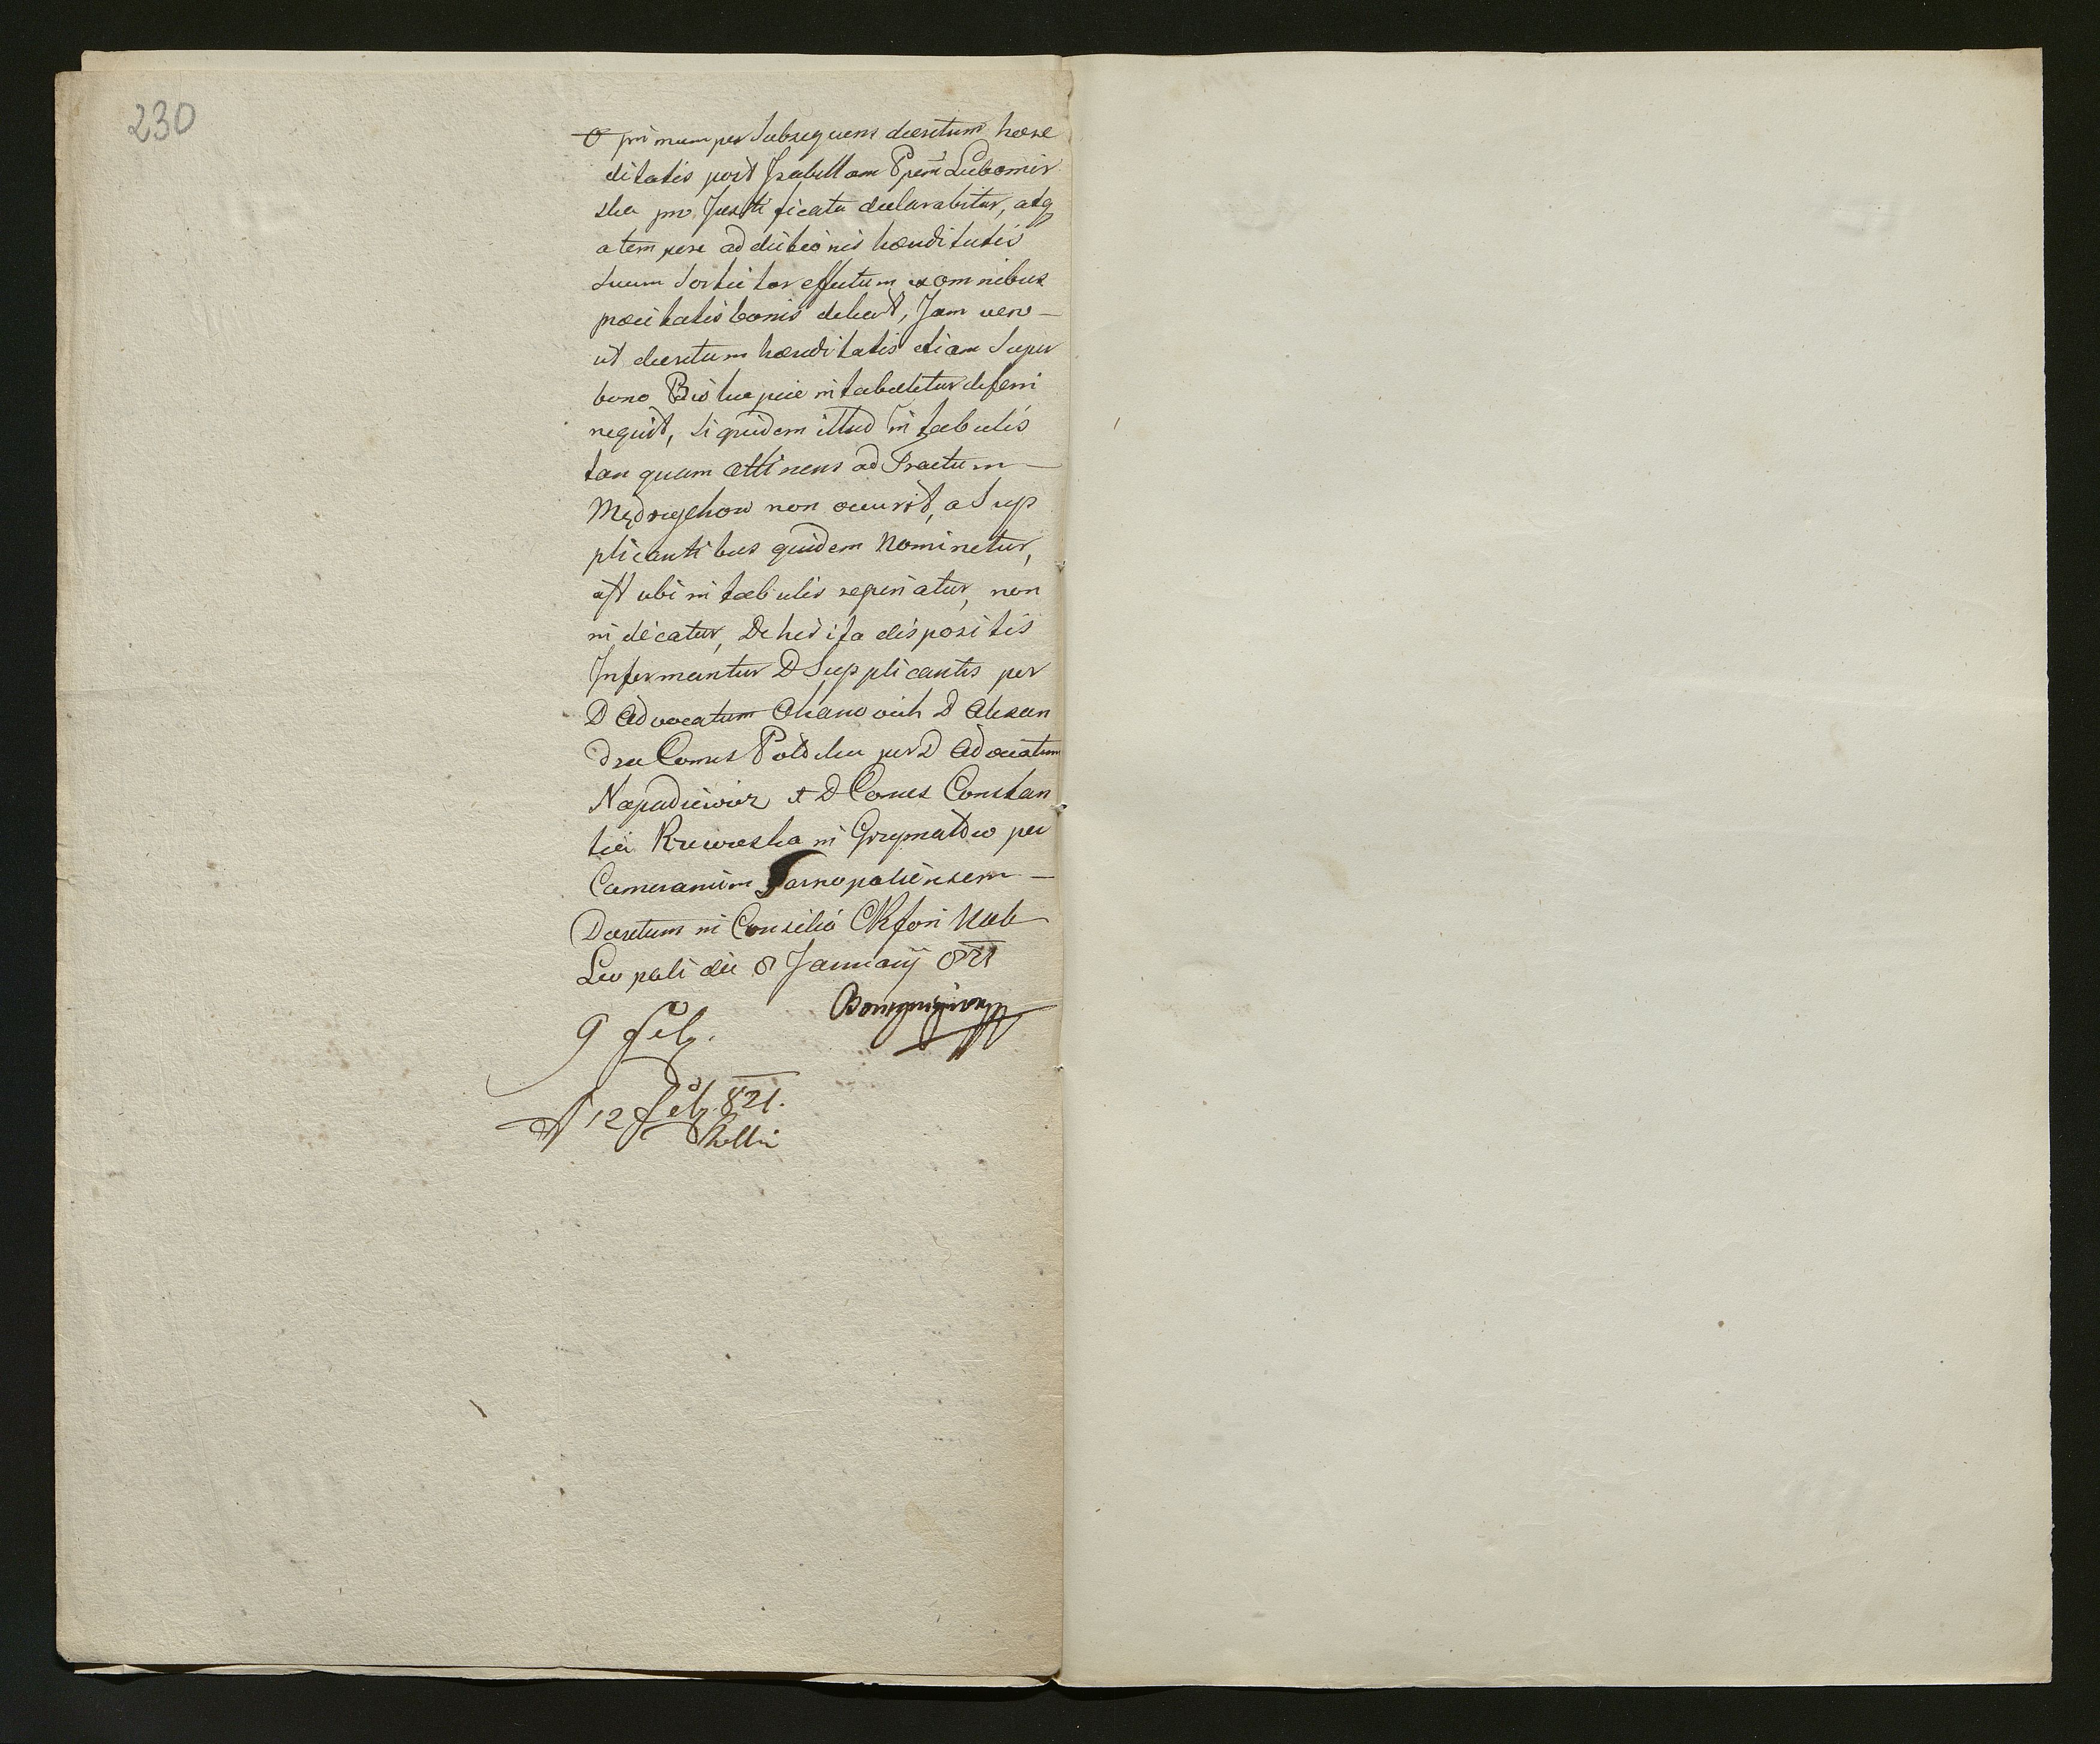 230
primum per Subsequens decretum hære
ditatis post Isabellam Ppem Lubomir
ska pro Justificata declarabitur, atq
a tempore addictionis hæreditatis
suum Sortitur effectum ex omnibus
præcitatis bonis debent, Jam vero —
ut decretum hæreditatis etiam Super
bono intabuletur deferri
nequit, Siquidem illud in tabulis
tanquam Attinens ad Tractum —
Mędrzychow non occurrit, a Sup
plicantibus quidem Nominetur,
ast ubi in tabulis reperiatur, non
indicatur, De his ita dispositis
Informantur D Supplicantes per
D Advocatum D Alexan
dra Comes Potocka per D Advocatum
Napadiewicz et D Comes Constan
tia Rzewuska in Grzymałow per
Camerarium Tarnopoliensem —
Decretum in Consilio CR fori Nob
Leopoli die 8 Januarij 821
9 Feb.
12 Feb. 821.